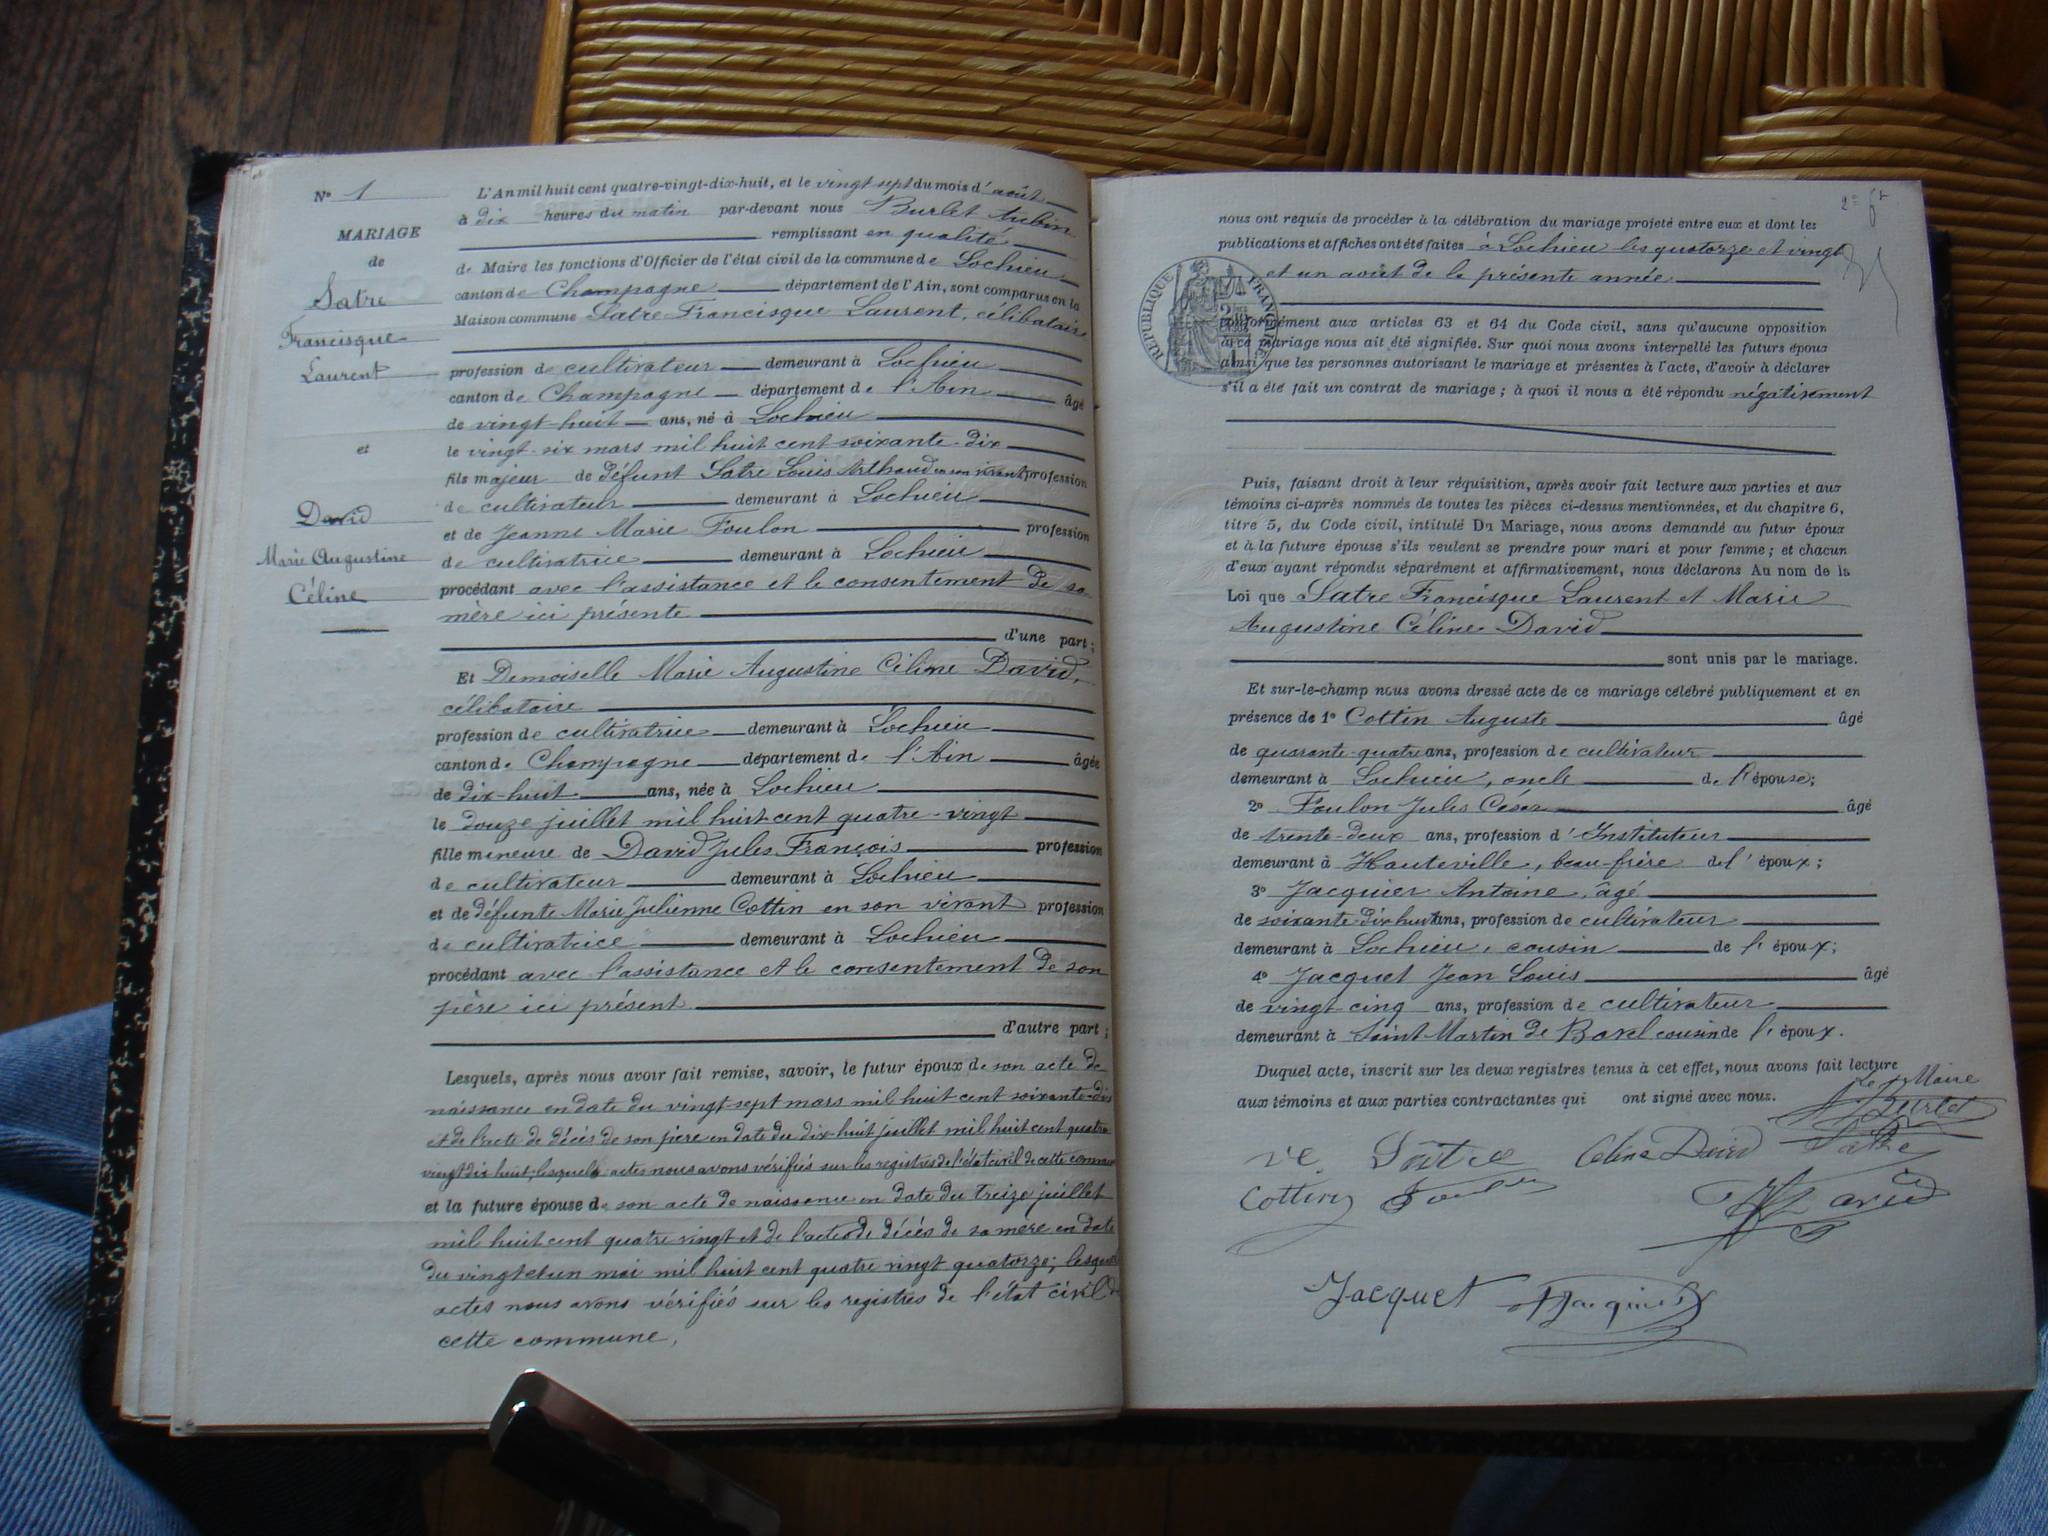 N° 1
MARIAGE
de
Satre
Francisque
Laurent
et
David
Marie Augustine
Céline
L'An mil huit cent quatre-vingt-dix-huit, et le vingt sept du mois d'août
à dix heures du matin par-devant nous Burlet Aubin
remplissant en qualité
de Maire les fonctions d'Officier de l'état civil de la commune de Lochieu
canton de Champagne département de l'Ain, sont comparus en la
Maison commune Satre Francisque Laurent, célibataire
profession de cultivateur demeurant à Lochieu
canton de Champagne département de l'Ain âgé
de vingt-huit ans, né à Lochieu
le vingt-six mars mil huit cent soixante-dix
fils majeur de défunt Satre Louis Arthaud en son vivant profession
de cultivateur demeurant à Lochieu
et de Jeanne Marie Foulon profession
de cultivatrice demeurant à Lochieu
procédant avec l'assistance et le consentement de sa
mère ici présente
d'une part;
Et Demoiselle Marie Augustine Céline David,
célibataire
profession de cultivatrice demeurant à Lochieu
canton de Champagne département de l'Ain âgée
de dix-huit ans, née à Lochieu
le douze juillet mil huit cent quatre-vingt
fille mineure de David Jules François profession
de cultivateur demeurant à Lochieu
et de défunte Marie Julienne Cottin en son vivant profession
de cultivatrice demeurant à Lochieu
procédant avec l'assistance et le consentement de son
père ici présent
d'autre part;
Lesquels, après nous avoir fait remise, savoir, le futur époux de son acte de
naissance en date du vingt-sept mars mil huit cent soixante-dix
et de l'acte de décès de son père en date du dix-huit juillet mil huit cent quatre
vingt dix huit, lesquels actes nous avons vérifiés sur les registres de l'état civil de cette commune
et la future épouse de son acte de naissance en date du treize juillet
mil huit cent quatre vingt et de l'acte de décès de sa mère en date
du vingt et un mai mil huit cent quatre vingt quatorze; lesquels
actes nous avons vérifiés sur les registres de l'état civil de
cette commune,
2e ft
nous ont requis de procéder à la célébration du mariage projeté entre eux et dont les
publications et affiches ont été faites à Lochieu les quatorze et vingt
et un août de la présente année
REPUBLIQUE FRANÇAISE
conformément aux articles 63 et 64 du Code civil, sans qu'aucune opposition
à ce mariage nous ait été signifiée. Sur quoi nous avons interpellé les futurs époux
ainsi que les personnes autorisant le mariage et présentes à l'acte, d'avoir à déclarer
s'il a été fait un contrat de mariage; à quoi il nous a été répondu négativement
Puis, faisant droit à leur réquisition, après avoir fait lecture aux parties et aux
témoins ci-après nommés de toutes les pièces ci-dessus mentionnées, et du chapitre 6,
titre 5, du Code civil, intitulé Du Mariage, nous avons demandé au futur époux
et à la future épouse s'ils veulent se prendre pour mari et pour femme; et chacun
d'eux ayant répondu séparément et affirmativement, nous déclarons Au nom de la
Loi que Satre Francisque Laurent et Marie
Augustine Céline David
sont unis par le mariage.
Et sur-le-champ nous avons dressé acte de ce mariage célébré publiquement et en
présence de 1° Cottin Auguste âgé
de quarante-quatre ans, profession de cultivateur
demeurant à Lochieu, oncle de l'épouse;
2° Foulon Jules César âgé
de trente-deux ans, profession d'Instituteur
demeurant à Hauteville, beau-frère de l'époux;
3° Jacquier Antoine, âgé
de soixante-dix huit ans, profession de cultivateur
demeurant à Lochieu, cousin de l'époux;
4° Jacquet Jean Louis âgé
de vingt-cinq ans, profession de cultivateur
demeurant à Saint Martin de Bavel cousin de l'époux.
Duquel acte, inscrit sur les deux registres tenus à cet effet, nous avons fait lecture
aux témoins et aux parties contractantes qui ont signé avec nous.
Le Maire
Burlet
ve Satre Céline David Satre
Cottin Foulon David
Jacquet Jacquier